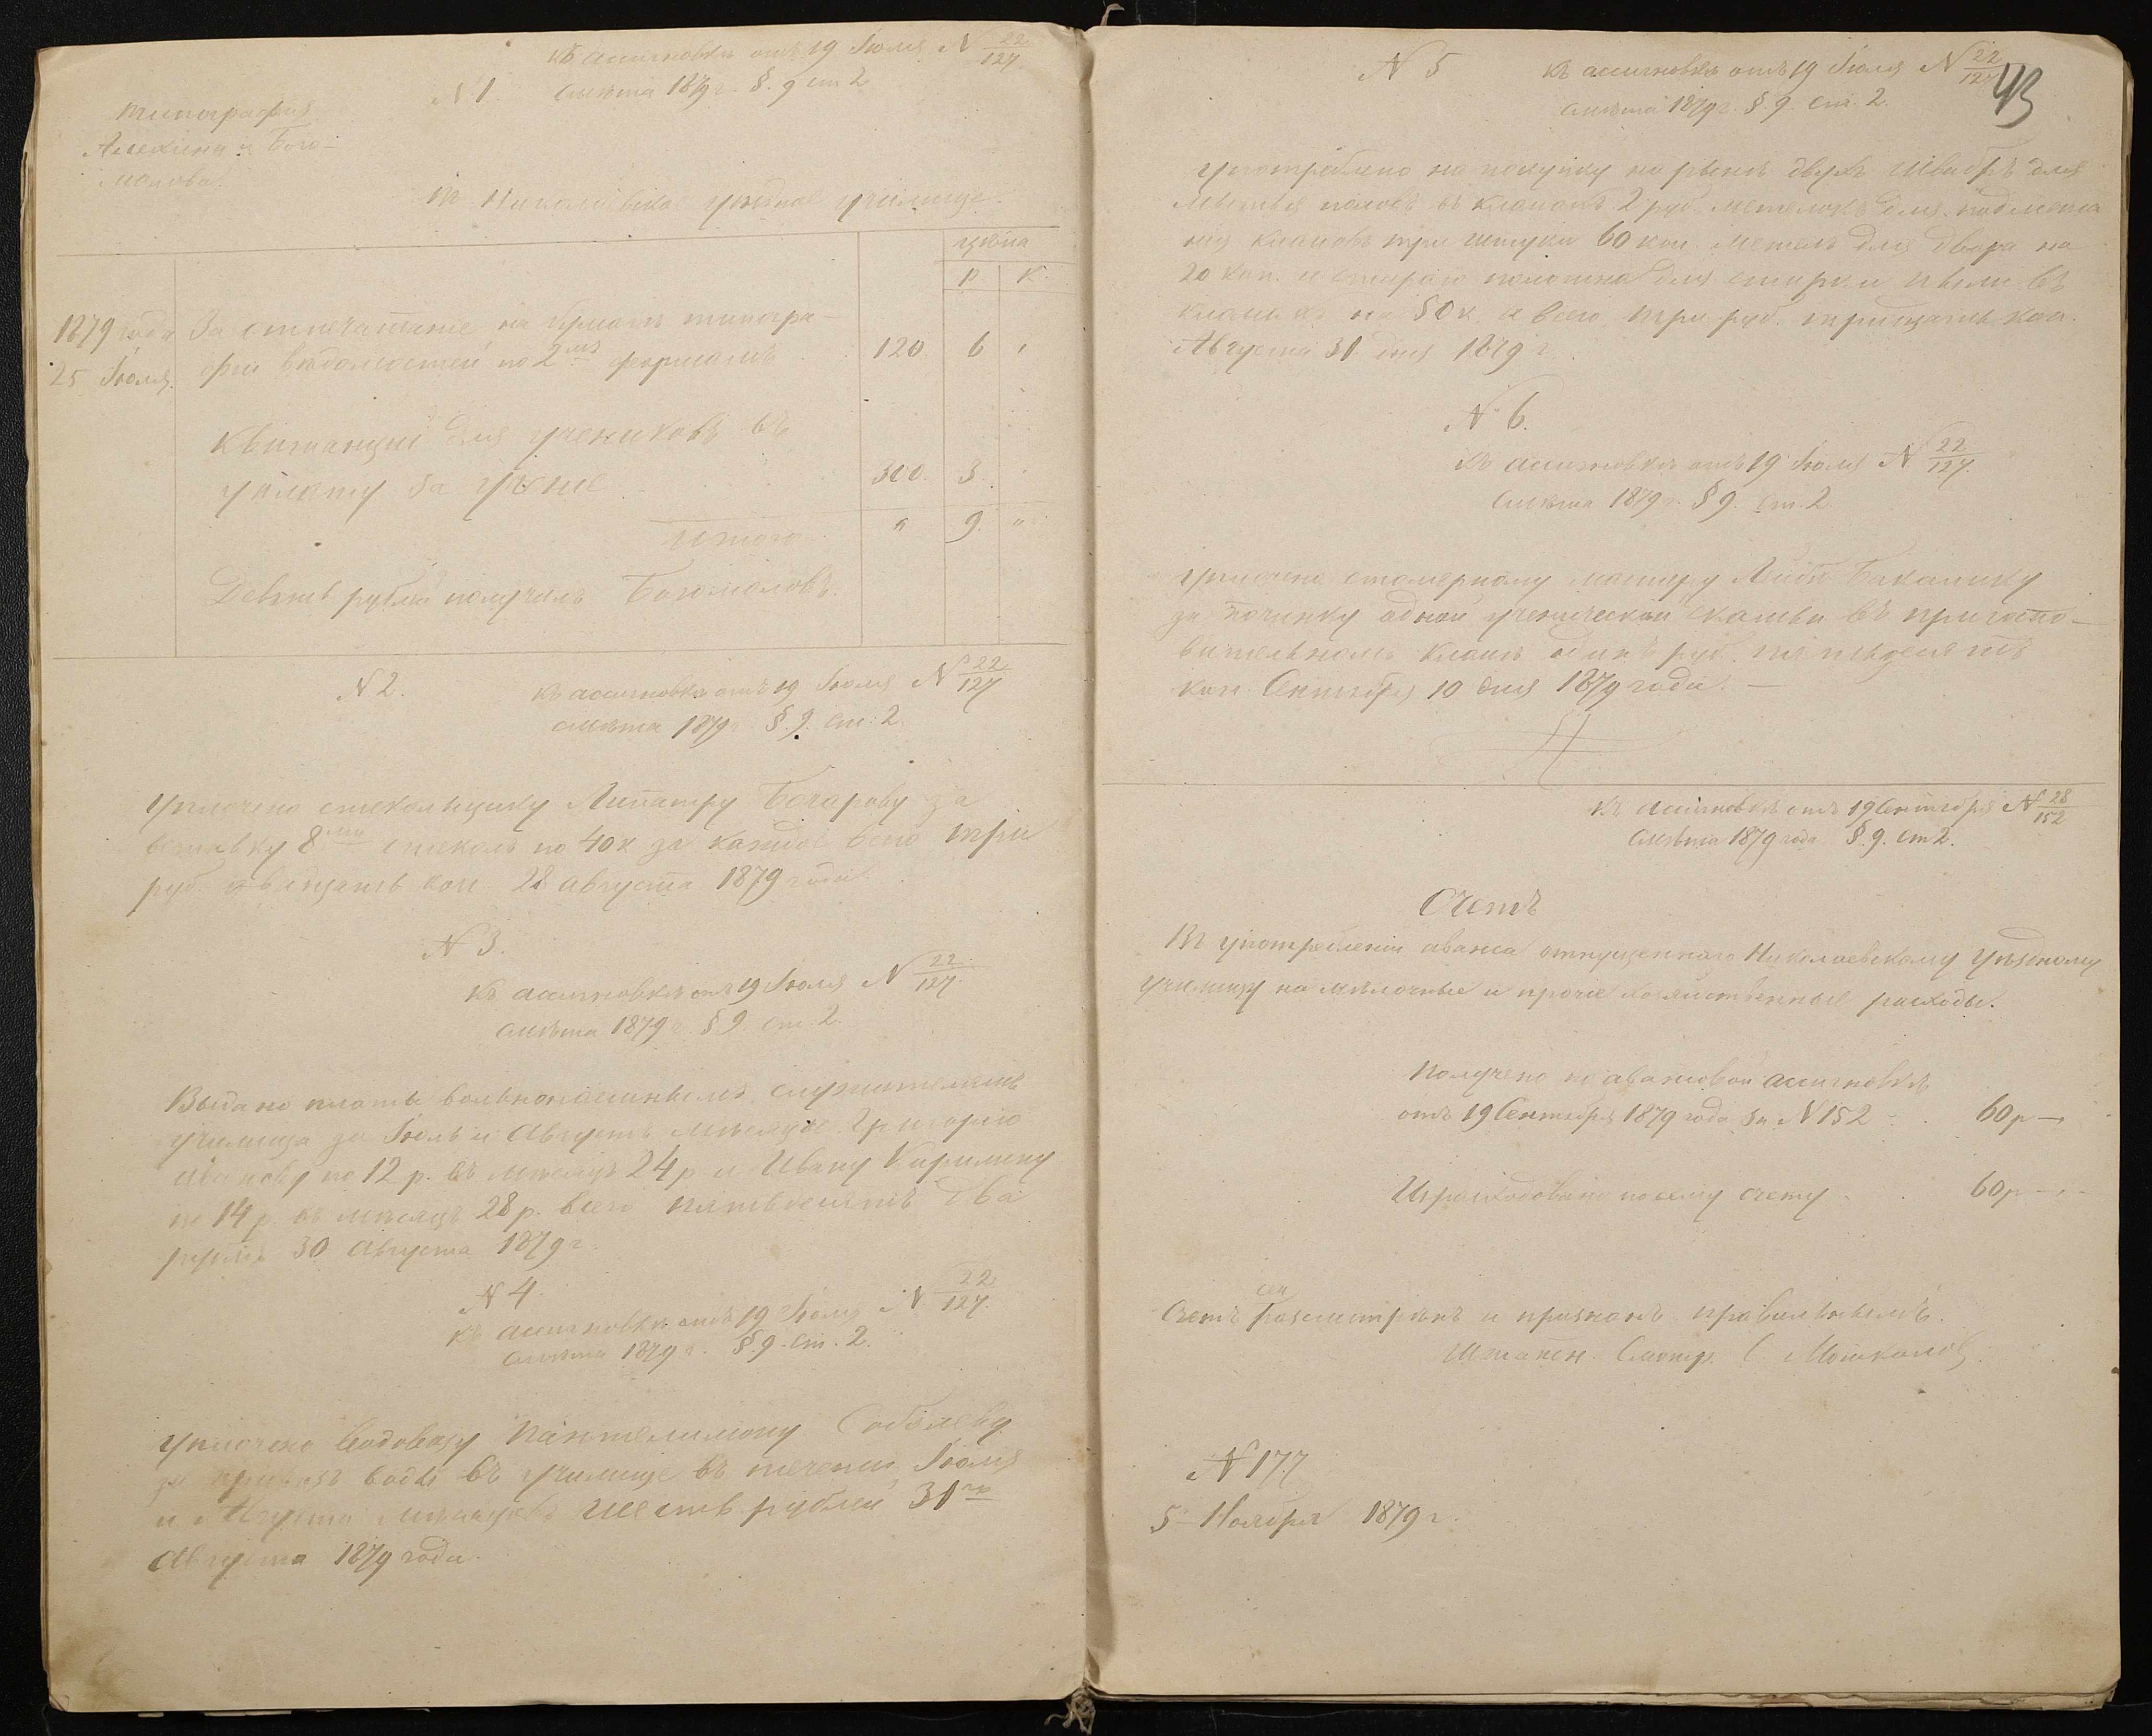 Къ ассигновкѣ отъ 19 Іюля N 22/127
N 1. смѣта 1879 г. §. 9 ст 2
Типографія
Алехина и Бого-
молова.
Въ Николаевское уѣздное училище.
цѣна
Р К.
1879 года За отпечатаніе на бумагѣ типогра-
25 Іюля. фіи вѣдомостей по 2мъ формамъ 120. 6 "
Квитанціи для учениковъ въ
уплату за ученіе 300. 3.
Итого " 9. "
Девять рублей получилъ Богомоловъ.
N 2. Къ ассигновкѣ отъ 19 Іюля N 22/127
смѣта 1879 г. §. 9. ст. 2.
Уплочено стекольщику Бочарову за
вставку 8ми стеколъ по 40 к за каждое всего три
руб. двадцать коп 28 августа 1879 года.
N 3.
Къ ассигновкѣ отъ 19 Іюля N 22/127.
смѣта 1879 г. § 9 ст. 2
Выдано платы вольнонаемнымъ служителямъ
училища за Іюль и Августъ мѣсяцы Григорію
Иванову по 12 р. въ мѣсяцъ 24 р и Ивану
по 14 р. въ мѣсяцъ 28 р. всего пятьдесятъ два
рубля 30 Августа 1879 г.
N 4.
Къ ассигновкѣ отъ 19 Іюля N 22/127.
смѣта 1879 г. §. 9. ст. 2.
Уплочено водовозу Пантелимону Соболеву
за привозъ воды въ училище въ теченіи Іюля
и Августа мѣсяцовъ шесть рублей 31го
Августа 1879 года.
N 5 Къ ассигновкѣ отъ 19 Іюля N 22/127
43
смѣта 1879 г. §. 9. ст. 2.
Употреблено на покупку на рынкѣ двухъ швабръ для
мытья половъ въ классахъ 2 руб. метелокъ для подмета
нія классовъ три штуки 60 коп. метелъ для двора на
20 коп. и стараго полотна для стирки пыли въ
классахъ на 50 к. а всего три руб. тридцать коп.
Августа 31 дня 1879 г.
N 6.
Къ ассигновкѣ отъ 19 Іюля N 22/127.
смѣта 1879 г. § 9. ст. 2
Уплочено столярному мастеру
за починку одной ученической скамьи въ пригото-
вительномъ классѣ одинъ руб. пятьдесятъ
коп. Сентября 10 дня 1879 года. —
Къ ассигновкѣ отъ 19 Сентября N 28/152
смѣта 1879 года §. 9. ст 2.
Счетъ
Въ употребленіи аванса отпущеннаго Николаевскому уѣздному
училищу на мѣлочные и прочіе хозяйственные расходы.
Получено по авансовой ассигновкѣ
отъ 19 Сентября 1879 года за N 152 60 р —
Израсходовано по сему счету 60 р —
сей
Счетъ разсмотрѣнъ и признанъ правильнымъ.
Штатн. Смотр.
N 177
5 Ноября 1879 г.